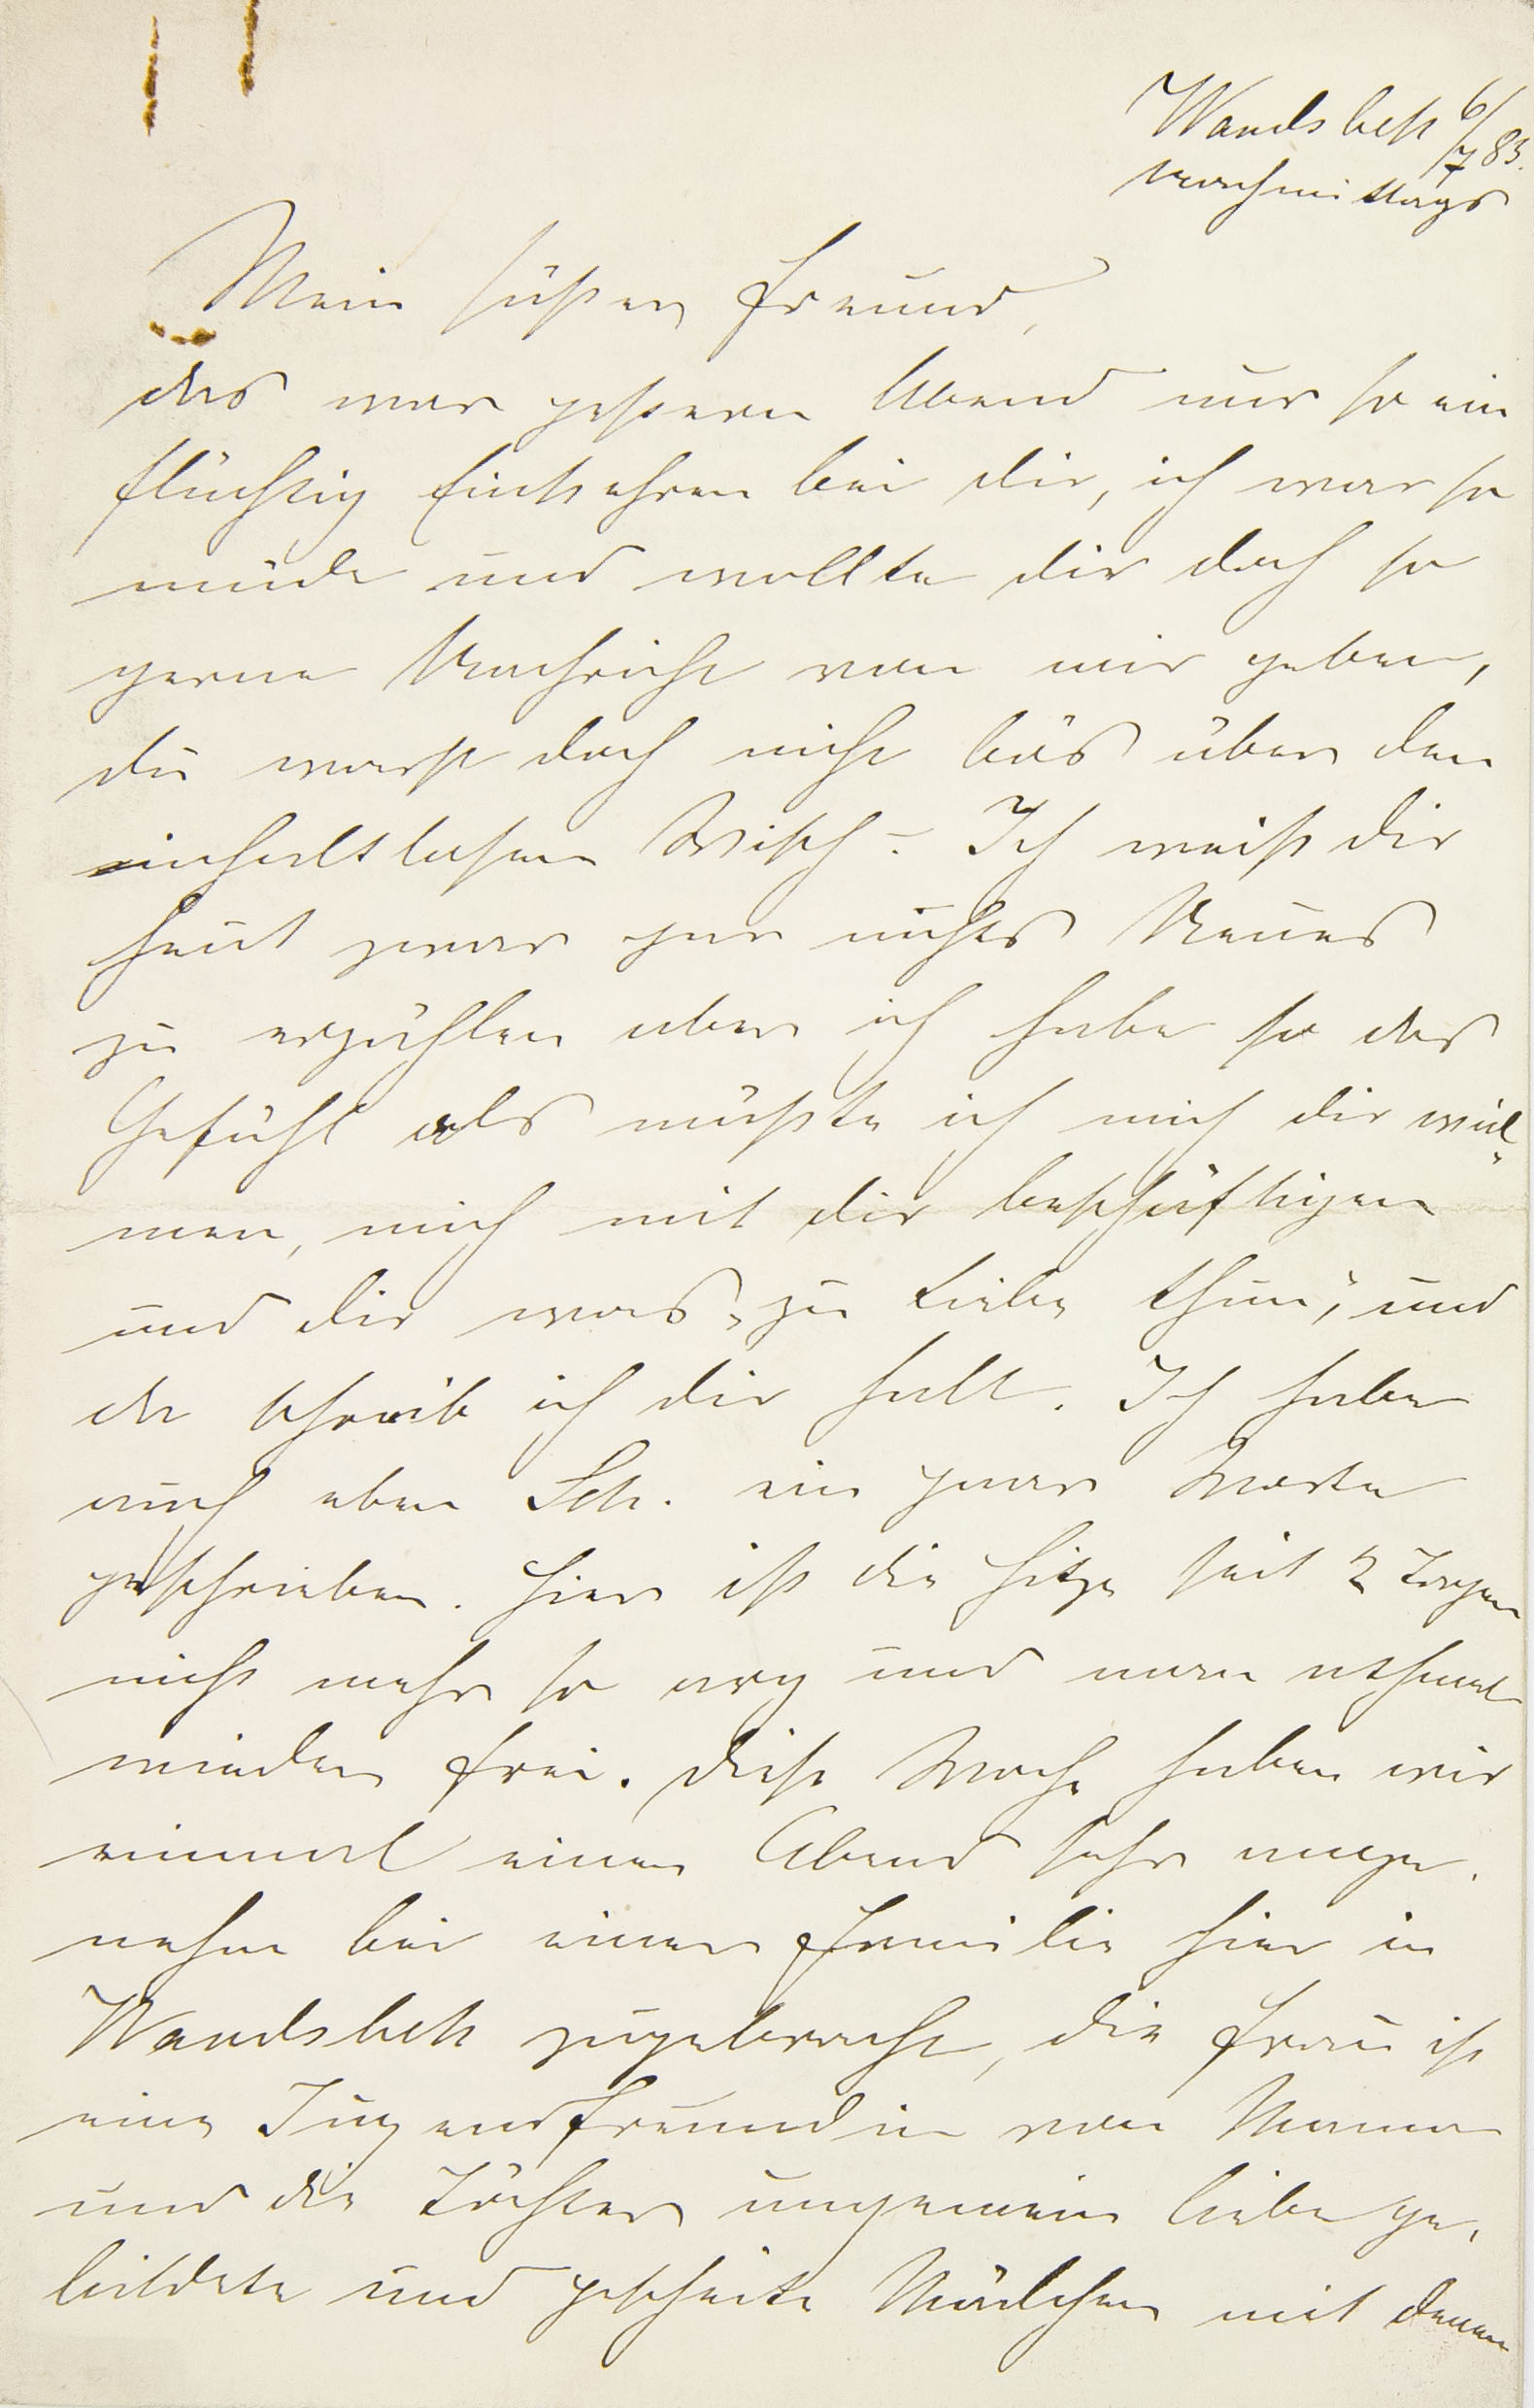 Wandsbek 6/7 83.
Nachmittags
Mein süßer Freund,
das war gestern Abend nur so ein
flüchtig Einkehren bei dir, ich war so
müde und wollte dir doch so
gerne Nachricht von mir geben,
du warst doch nicht bös über den
inhaltlosen Wisch? Ich weiß dir
heut zwar gar nichts Neues
zu erzählen aber ich habe so das
Gefühl als müßte ich mich dir wid-
men, mich mit dir beschäftigen
und dir was „zu Liebe thun“, und
da schreib ich dir halt. Ich habe
auch eben Sch. ein paar Worte
geschrieben. Hier ist die Hitze seit 2 Tagen
nicht mehr so arg und man athmet
wieder frei. Diese Woche haben wir
einmal einen Abend sehr ange-
nehm bei einer Familie hier in
Wandsbek zugebracht, die Frau ist
eine Jugendfreundin von Mama
und die Töchter ungemein liebe ge-
bildete und gescheite Mädchen mit denen